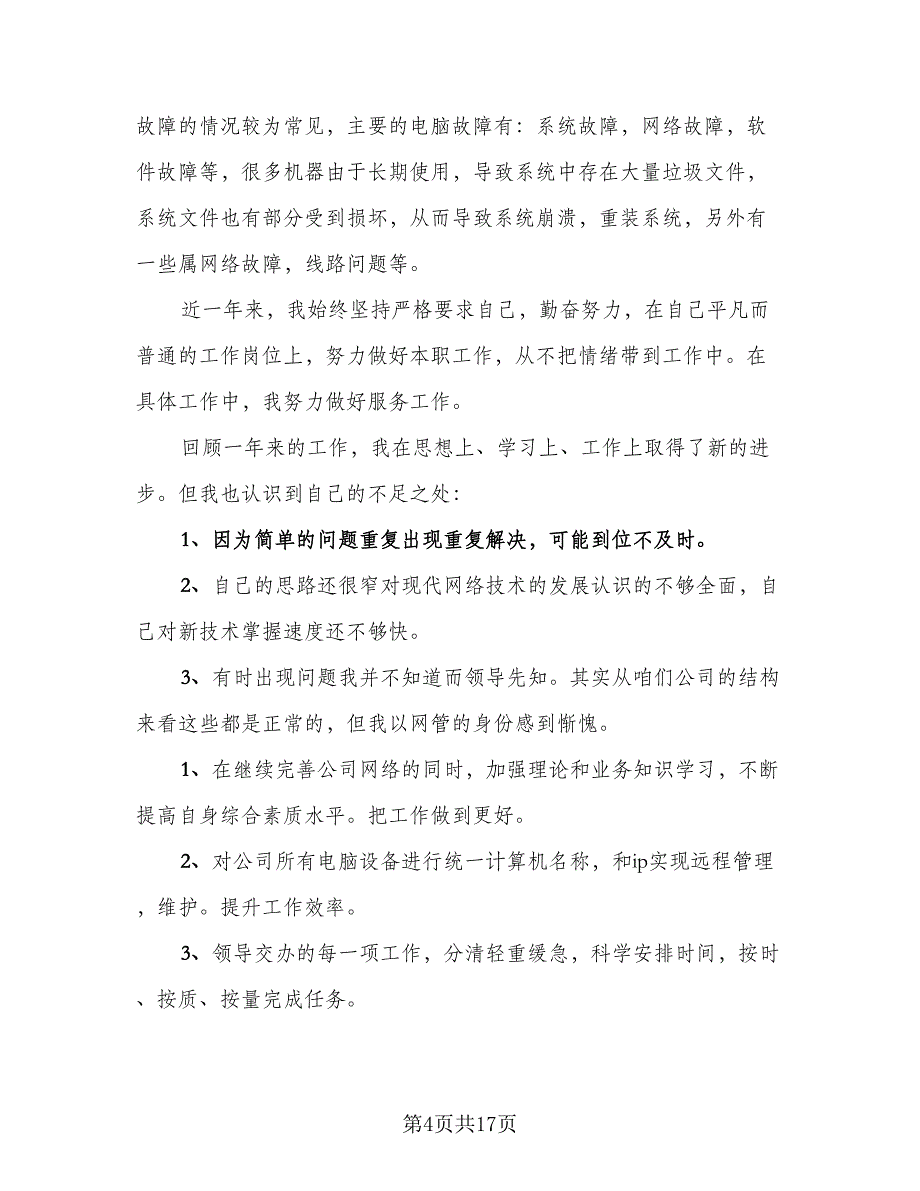 故障的情况较为常见，主要的电脑故障有：系统故障，网络故障，软
件故障等，很多机器由于长期使用，导致系统中存在大量垃圾文件，
系统文件也有部分受到损坏，从而导致系统崩溃，重装系统，另外有
一些属网络故障，线路问题等。
近一年来，我始终坚持严格要求自己，勤奋努力，在自己平凡而
普通的工作岗位上，努力做好本职工作，从不把情绪带到工作中。在
具体工作中，我努力做好服务工作。
回顾一年来的工作，我在思想上、学习上、工作上取得了新的进
步。但我也认识到自己的不足之处：
1、因为简单的问题重复出现重复解决，可能到位不及时。
2、自己的思路还很窄对现代网络技术的发展认识的不够全面，自
己对新技术掌握速度还不够快。
3、有时出现问题我并不知道而领导先知。其实从咱们公司的结构
来看这些都是正常的，但我以网管的身份感到惭愧。
1、在继续完善公司网络的同时，加强理论和业务知识学习，不断
提高自身综合素质水平。把工作做到更好。
2、对公司所有电脑设备进行统一计算机名称，和ip实现远程管理
，维护。提升工作效率。
3、领导交办的每一项工作，分清轻重缓急，科学安排时间，按时
、按质、按量完成任务。
第4页共17页